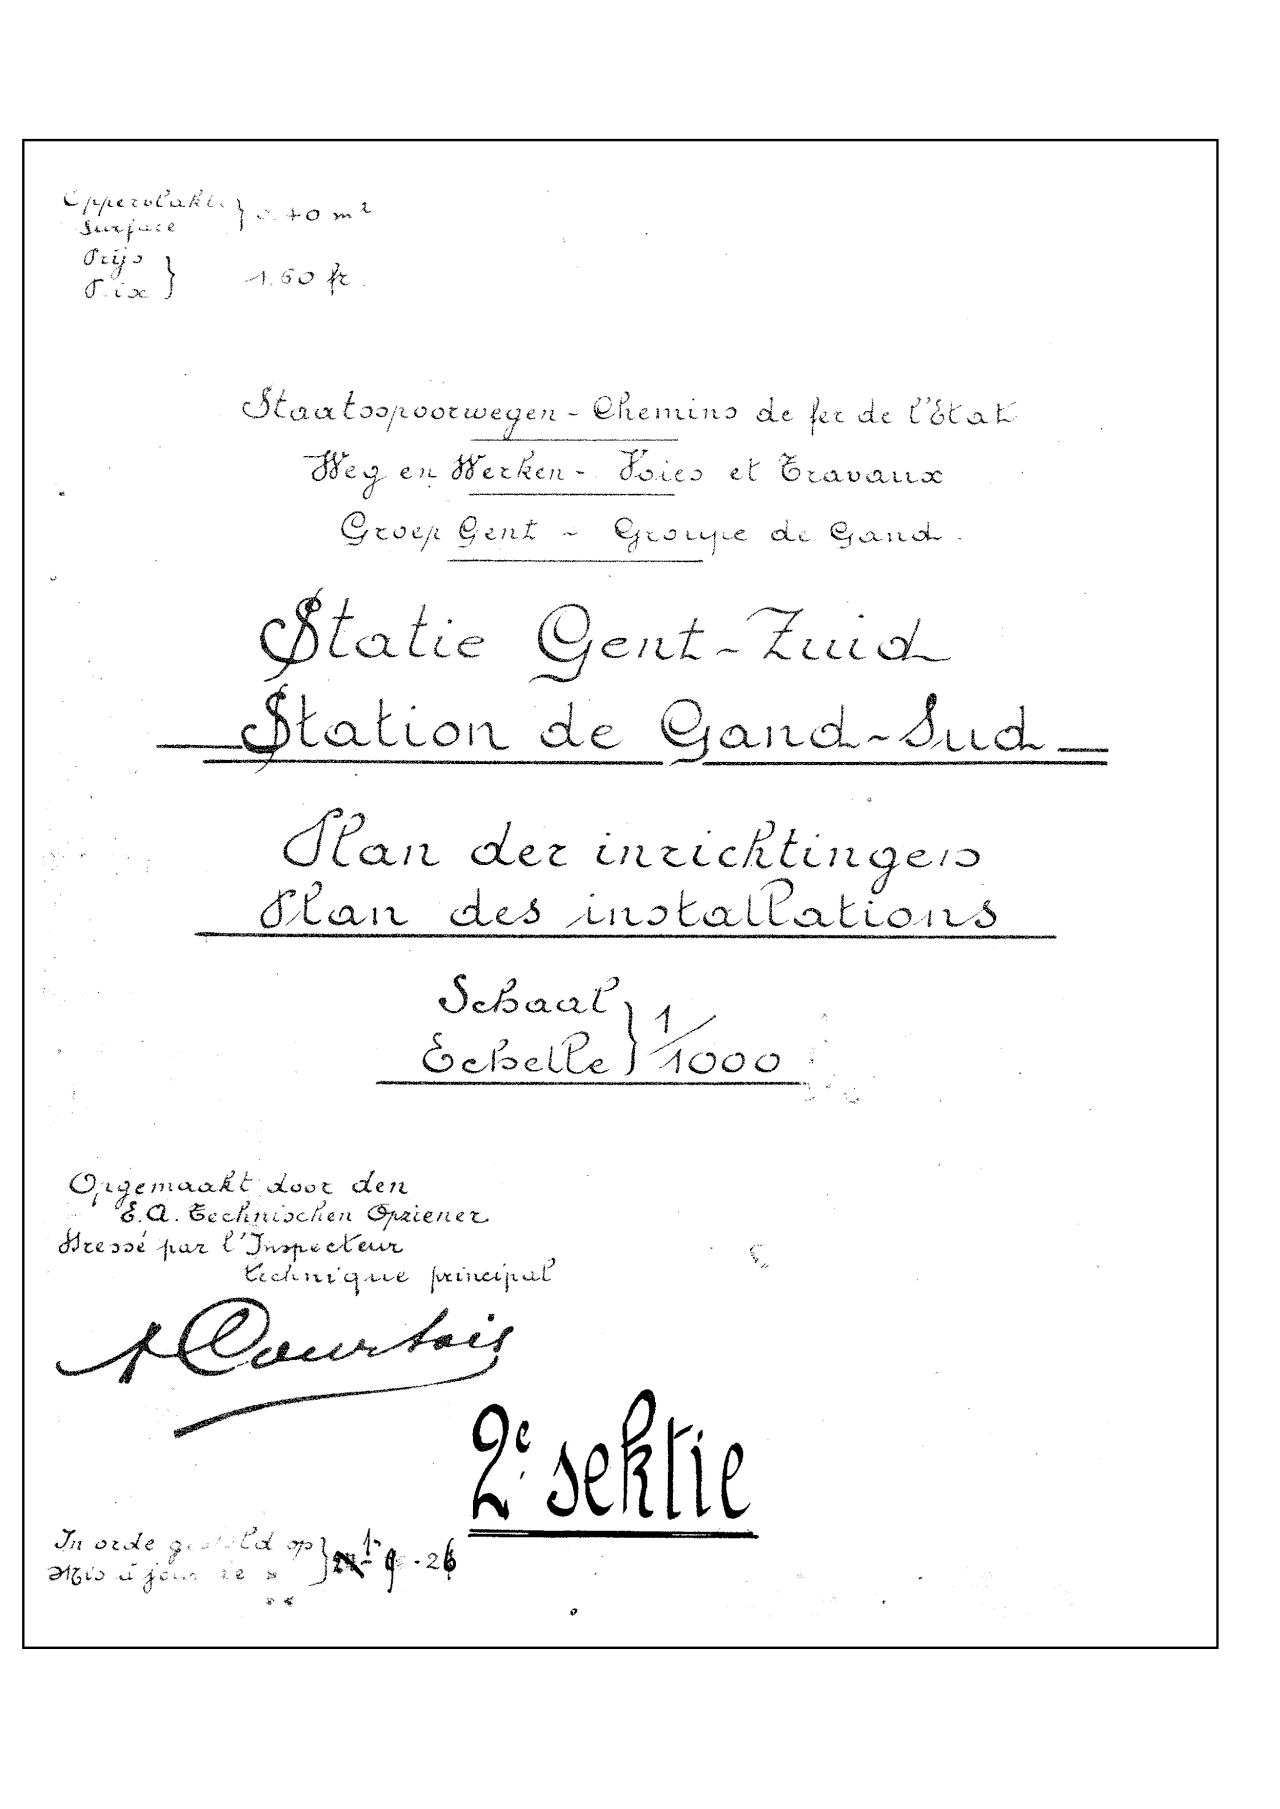 Oppervlakte
Surface } 0.40 m²
Prijs
Prix } 1.60 fr.
Staatsspoorwegen - Chemins de fer de l'Etat
Weg en Werken - Voies et Travaux
Groep Gent - Groupe de Gand.
Statie Gent-Zuid
Station de Gand-Sud
Plan der inrichtingen
Plan des installations
Schaal
Echelle } 1/1000
Opgemaakt door den
E.A. Technischen Opziener
Dressé par l'Inspecteur
technique principal
A Courtois
2e sektie
In orde gesteld op
Mis à jour le